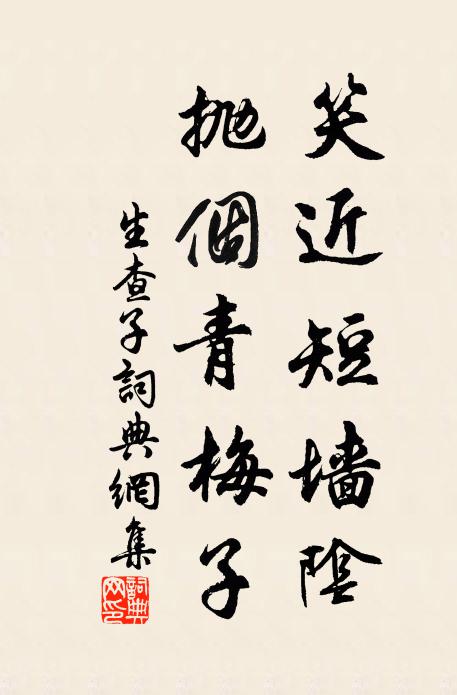 笑近短墙陰
抛個青梅子
生查子詞典網集
詞典網印